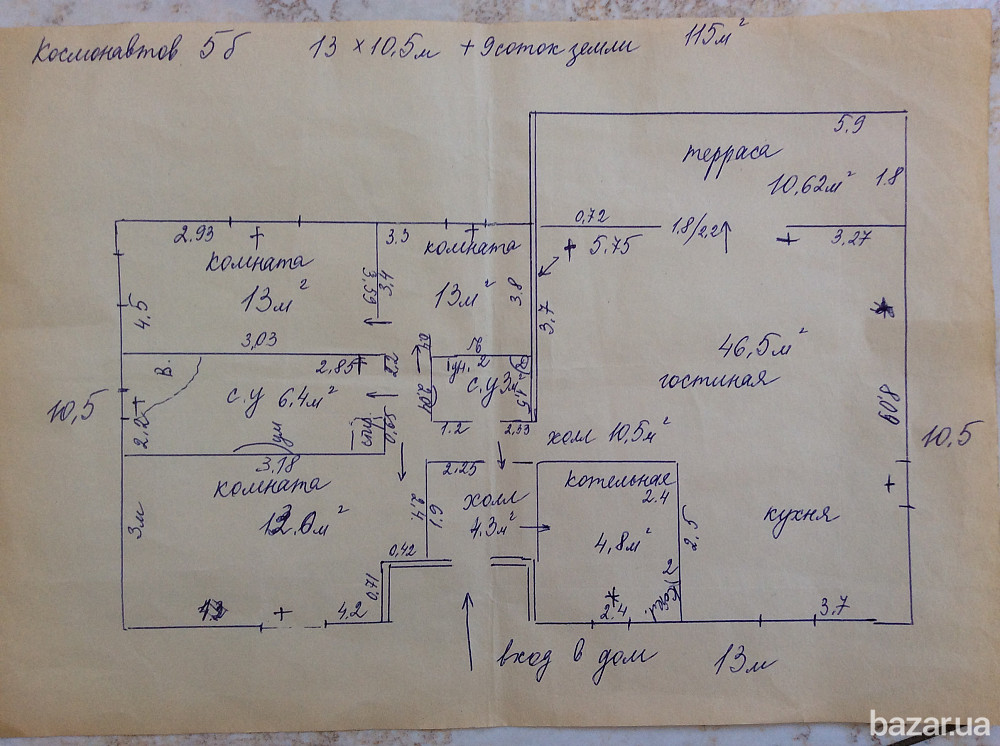 Космонавтов 5б 13 × 10,5м + 9соток земли 115м²
5.9
терраса
10,62м² 1.8
0,72 1.8/2,2 3.27
5.75
2.93 3.3
комната комната
13м² 3,59 3,4 13м² 3.8
4,5 3,7
3,03
46,5м²
гостиная
8,09
В. 2.85 2.2 0,4
с.у 6,4м² 2.04 с.у 3м² 1.5
2.2 ум стир. 0,65
10,5 10.5
1.2 2,53
холл 10,5м²
3.18
комната
2.25
холл
4.3м²
котельная
2.4
3м 2.4 1.9
4,8м² 2.5
кухня
0,42
0,71
4.2 2.4 3.7
вход в дом 13м
bazar.ua